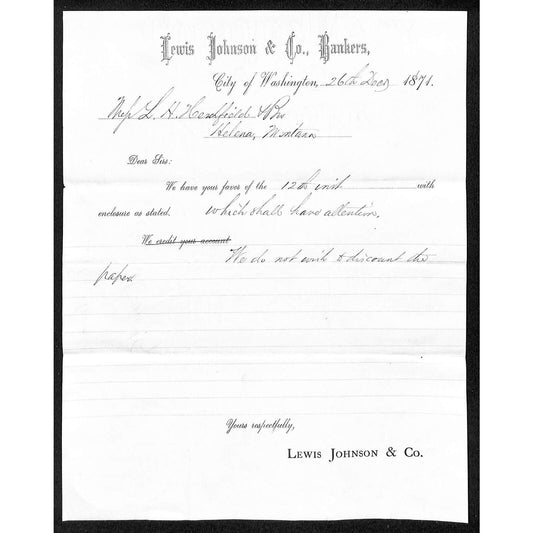 Lewis Johnson & Co., Bankers,
City of Washington, 26th Decr 1871.
Mess L. H. Hershfield & Bro
Helena, Montana
Dear Sirs:
We have your favor of the 12th inst with
enclosure as stated. which shall have attention.
We credit your account
We do not wish to discount the
paper
Yours respectfully,
LEWIS JOHNSON & CO.